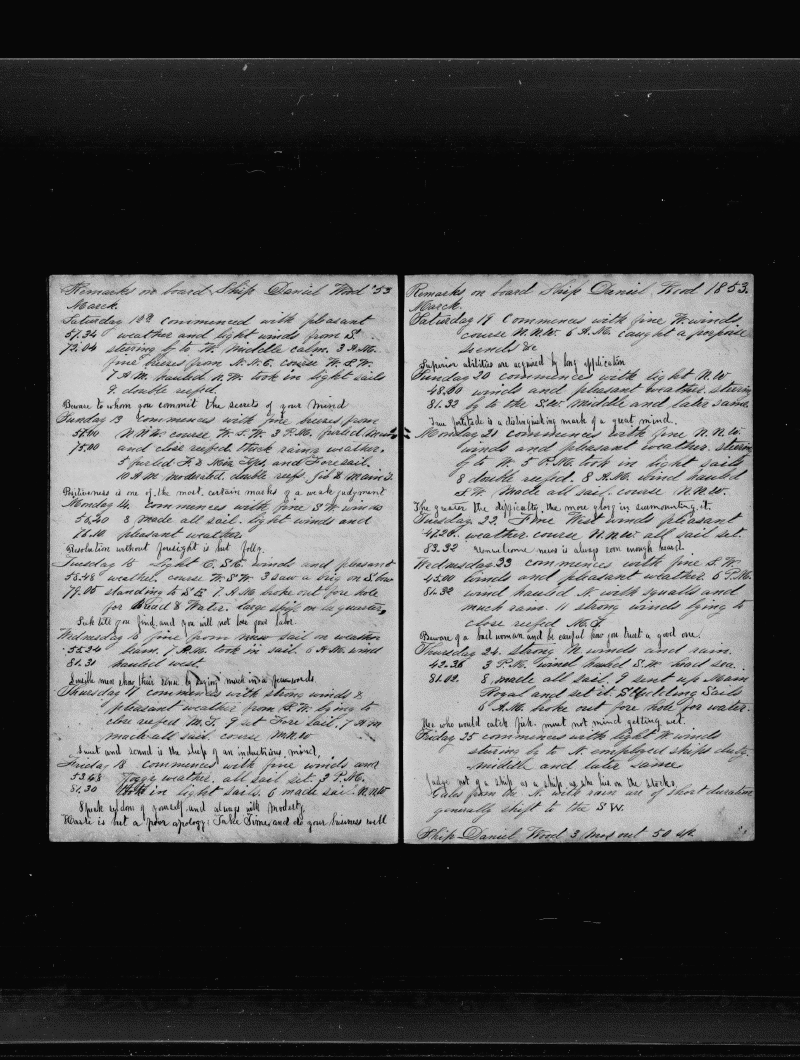 Remarks on board Ship Daniel Wood '53
March.
Saturday 12th commenced with pleasant
57.34 weather and light winds from S.
72.04 steering by to W. Middle calm. 3 A.M.
fine breeses from N.N.E. course W.S.W.
7 A.M. hauled N.W. took in light sails
9. double reefed.
Beware to whom you commit the secrets of your mind
Sunday 13 commences with fine breeses from
course W.S.W. 3 P.M. furled
75.00 and close reefed. thick rainy weather.
5 furled F. & Miz. Tps. and Foresail.
10 A.M. moderated. double reefs jib & Main
Positiveness is one of the most certain marks of a weak judgment
Monday 14. commences with fine S.W. winds
55.20 8 made all sail. light winds and
76.10 pleasant weather
Resolution without foresight is but folly.
Tuesday 15 Light E.S.E. winds and pleasant
55.48 weather. course W.S.W. 3 saw a brig on S. bow
79.05 standing to S.E. 7. A.M. broke out fore hole
for Bread & Water. large ship on lee quarter,
Seek till you find, and you will not lose your labor.
Wednesday 16 fine from saw sail on weather
55.24 beam. 7 A.M. took in sail. 6 A.M. wind
81.31 hauled west.
Sensible men show their sense by saying much in a few words
Thursday 17 commences with strong winds &
pleasant weather from S.W. lying to
close reefed M.T. 9 set Fore sail. 7 A.M
made all sail. course N.N.W
Sweet and sound is the sleep of an industrious mind,
Friday 18 commences with fine winds and
53.68 foggy weather. all sail set. 3 P.M.
81.30 took in light sails. 6 made sail N.N.W
Speak seldom of yourself, and always with modesty.
Haste is but a poor apology: Take Time, and do your business well
Remarks on board Ship Daniel Wood 1853.
March.
Saturday 19 Commences with fine W. winds
course N.N.W. 6 A.M. caught a porpoise
&c
Superior abilities are acquired by long application
Sunday 20 commences with light N.W
48.00 winds and pleasant weather. steering
81.33 by to the S.W. middle and later same.
True fortitude is a distinguishing mark of a great mind.
Monday 21 commences with fine N.N.W.
winds and pleasant weather. steering
by to W. 5 P.M. took in light sails
8 double reefed. 8 A.M. wind hauled
S.W. made all sail. course N.N.W.
The greater the difficulty, the more glory in surmounting it.
Tuesday. 22. Fine West winds pleasant
weather. course N.N.W. all sail set.
83.32 Unwelcome news is always soon enough heard.
Wednesday 23 commences with fine S.W.
43.00 winds and pleasant weather. 5 P.M.
81.32 wind hauled N. with squalls and
much rain. 11 strong winds lying to
close reefed M.T.
Beware of a bad woman and be careful how you trust a good one.
Thursday 24. strong N winds and rain.
42.36 3 P.M. wind hauled S.W. head sea.
81.02. 8 made all sail. 9 sent up Main
Royal and set it. Studding Sails
6 A.M. broke out fore hole for water.
He who would catch fish, must not mind getting wet.
Friday 25 commences with light W winds
steering by to N. employed ships duty.
middle and later same
Judge not of a ship as a ship, as she lies on the stocks,
Gales from the N. with rain are of short duration
generally shift to the SW.
Ship Daniel Wood 3 Mos out 50 sp.